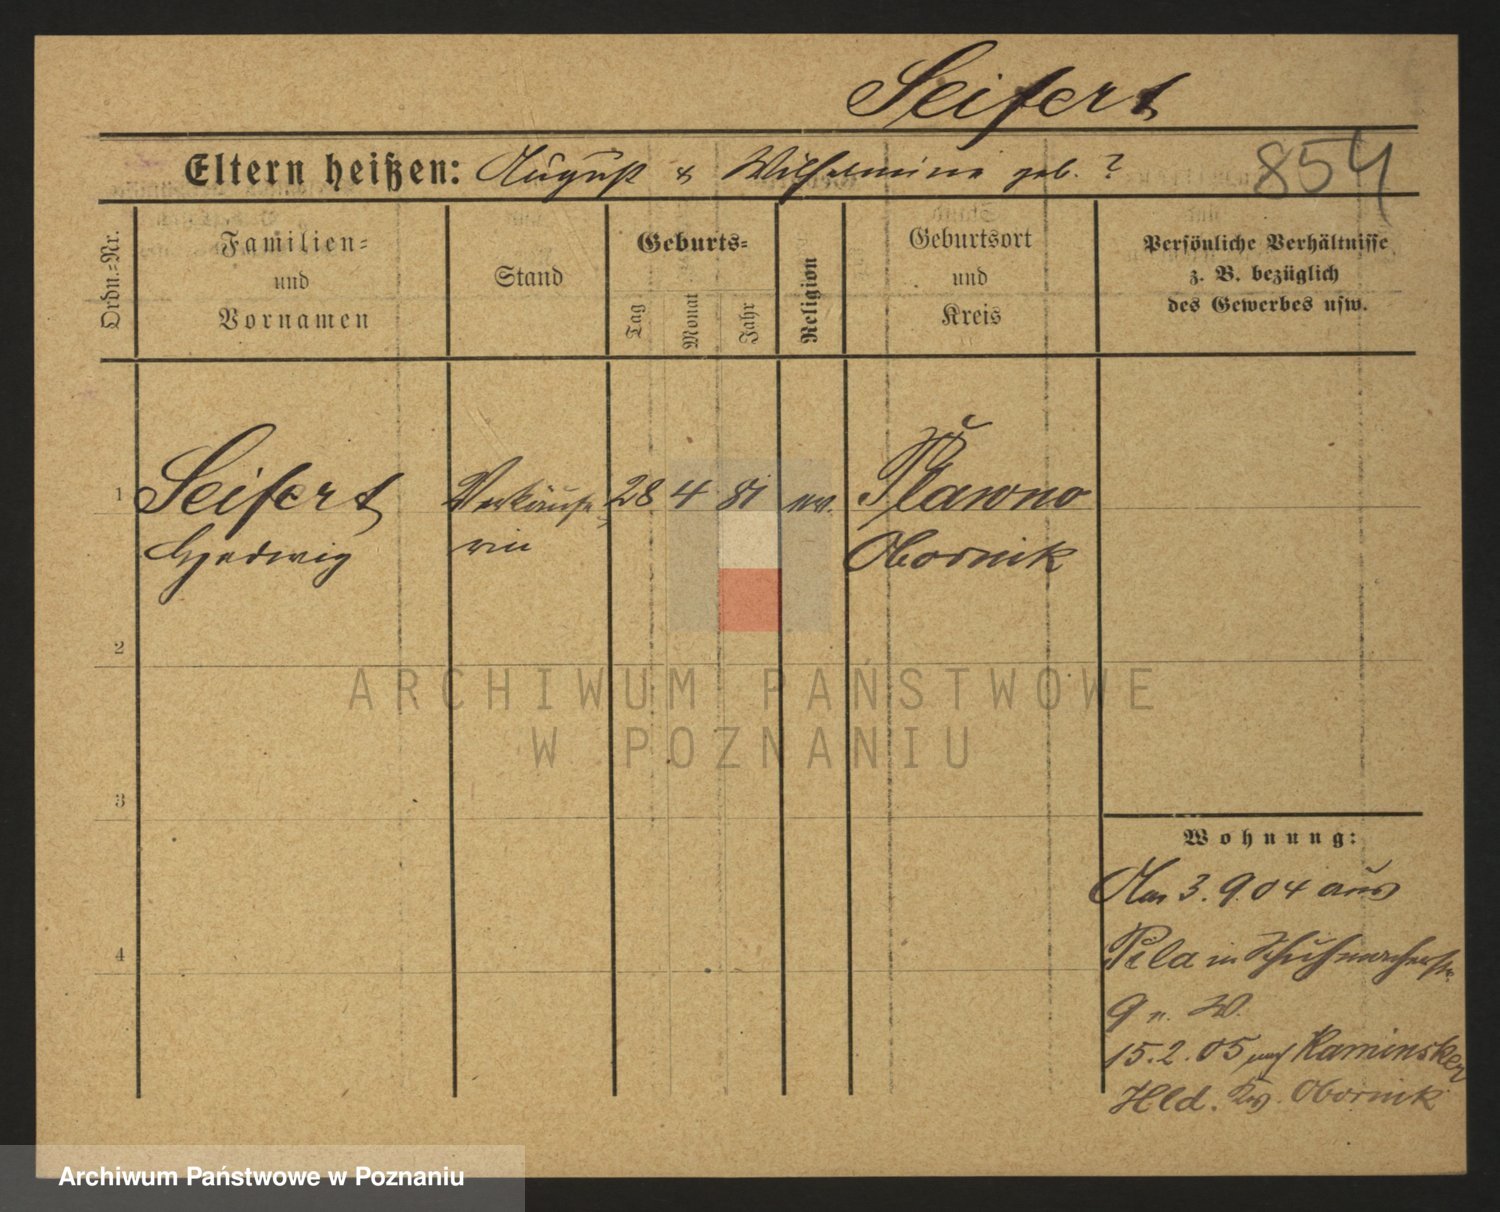 Seifert
Eltern heißen: August & Wilhelmine geb. ?
854
Ordn.=Nr.
Familien=
und
Vornamen
Stand
Geburts=
Tag
Monat
Jahr
Religion
Geburtsort
und
Kreis
Persönliche Verhältnisse
z. B. bezüglich
des Gewerbes usw.
1
Seifert
Hedwig
Verkäufe
rin
28 4 81
ev.
Pławno
Obornik
2
3
4
ARCHIWUM PAŃSTWOWE
W POZNANIU
Wohnung:
3.9.04 aus
Pila in Schuhmacherstr.
9 n. W.
15.2.05 nach Kaminsker
Hld. Krs. Obornik
Archiwum Państwowe w Poznaniu